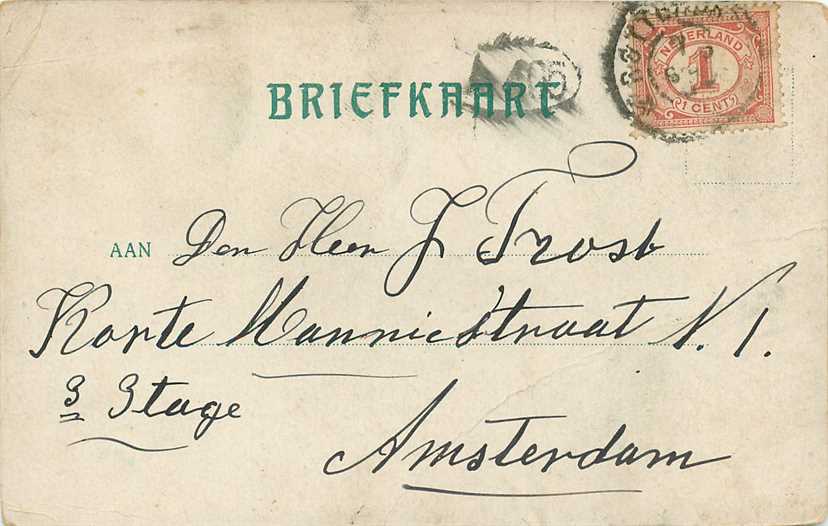 NEDERLAND
1
1 CENT
BRIEFKAART
AAN Den Heer J Trost
Korte Marnixstraat N. 1.
3 Etage
Amsterdam